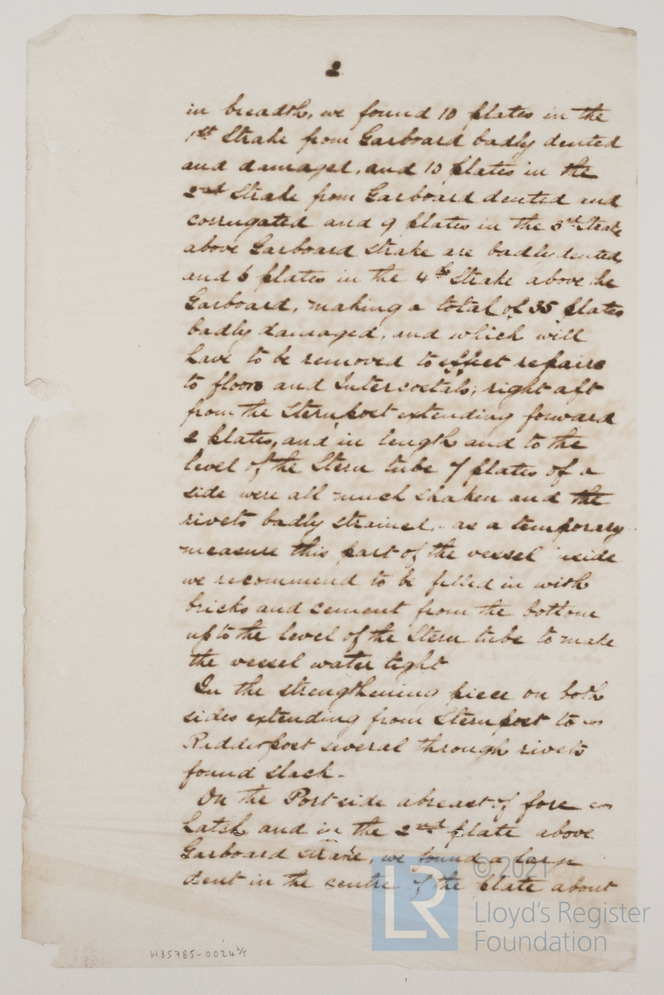 2
in breadth, we found 10 plates in the
1st Strake from Garboard badly dented
and damaged, and 10 plates in the
2nd Strake from Garboard dented and
corrugated and 9 plates in the 3rd Strake
above Garboard Strake are badly dented
and 6 plates in the 4th Strake above the
Garboard, making a total of 35 plates
badly damaged, and which will
have to be removed to effect repairs
to floors and Intercostals; right aft
from the Sternpost extending forward
2 plates, and in length and to the
level of the Stern tube 7 plates of a
side were all much shaken and the
rivets badly strained - as a temporary
measure this part of the vessel inside
we recommend to be filled in with
bricks and cement from the bottom
up to the level of the Stern tube to make
the vessel water tight
In the strengthening piece on both
sides extending from Sternpost to
Rudderpost several through rivets
found slack -
On the Port side abreast of fore
hatch and in the 2nd plate above
Garboard Strake, we found a large
dent in the centre of the plate about
W35785-0024 2/5
LR
© 2021
Lloyd's Register
Foundation